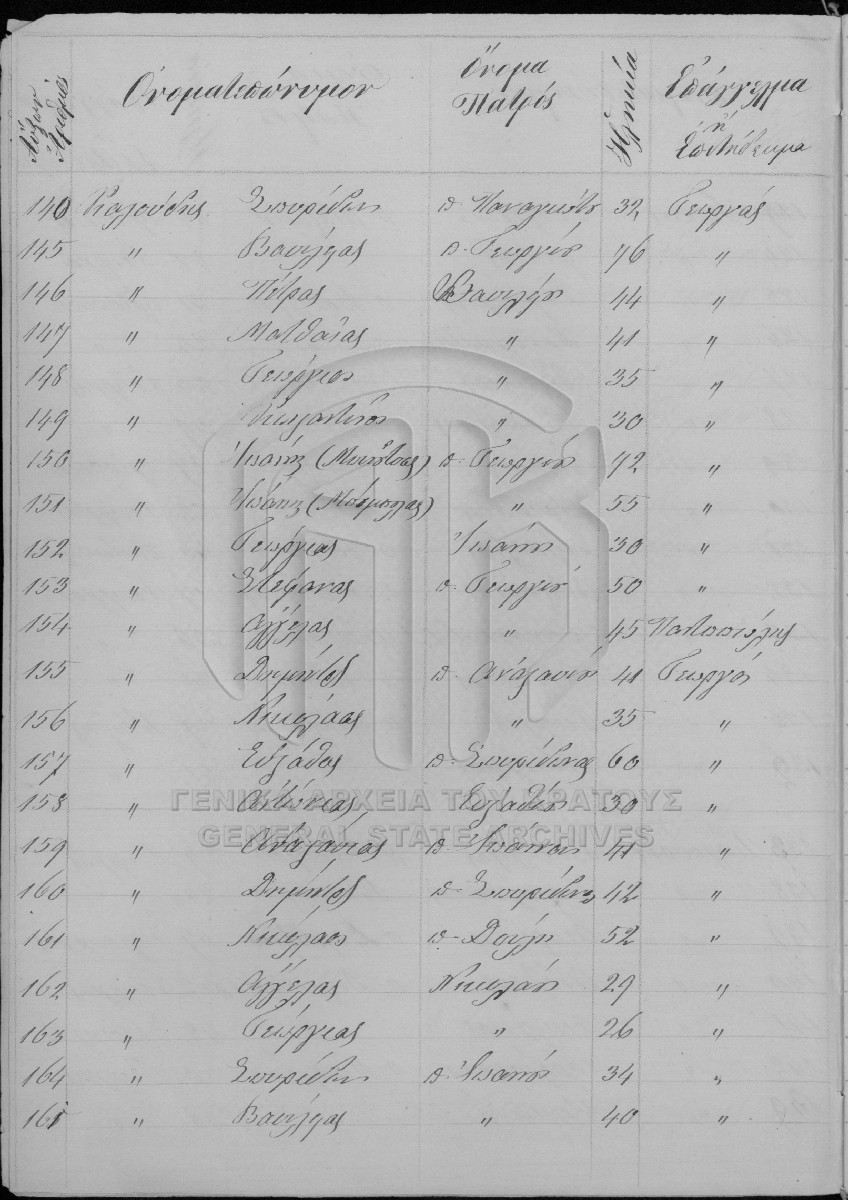 Αύξων Αριθμός Ονοματεπώνυμον Όνομα Πατρός Ηλικία Επάγγελμα ή Επιτήδευμα
140 Καλούδης Σπυρίδων π Παναγιώτη 32 Γεωργός
145 " Βασίλειος π. Γεωργίου 76 "
146 " Πέτρος Βασιλείου 44 "
147 " Ματθαίος " 41 "
148 " Γεώργιος " 35 "
149 " Κωνσταντίνος " 30 "
150 " Ιωάννης π. Γεωργίου 72 "
151 " Ιωάννης " 55 "
152 " Γεώργιος Ιωάννη 30 "
153 " Στέφανος π Γεωργίου 50 "
154 " Αγγέλος " 45 Παντοπώλης
155 " Δημήτρος π. Αναστασίου 41 Γεωργός
156 " Νικόλαος " 35 "
157 " π. Σπυρίδωνος 60 "
158 " Αντώνιος 30 "
159 " Αναστάσιος π Ιωάννου 41 "
160 " Δημήτρος π. Σπυρίδωνος 42 "
161 " Νικόλαος π. 52 "
162 " Αγγέλος Νικολάου 29 "
163 " Γεώργιος " 26 "
164 " Σπυρίδων π. Ιωάννου 34 "
165 " Βασίλειος " 40 "
ΓΕΝΙΚΑ ΑΡΧΕΙΑ ΤΟΥ ΚΡΑΤΟΥΣ
GENERAL STATE ARCHIVES